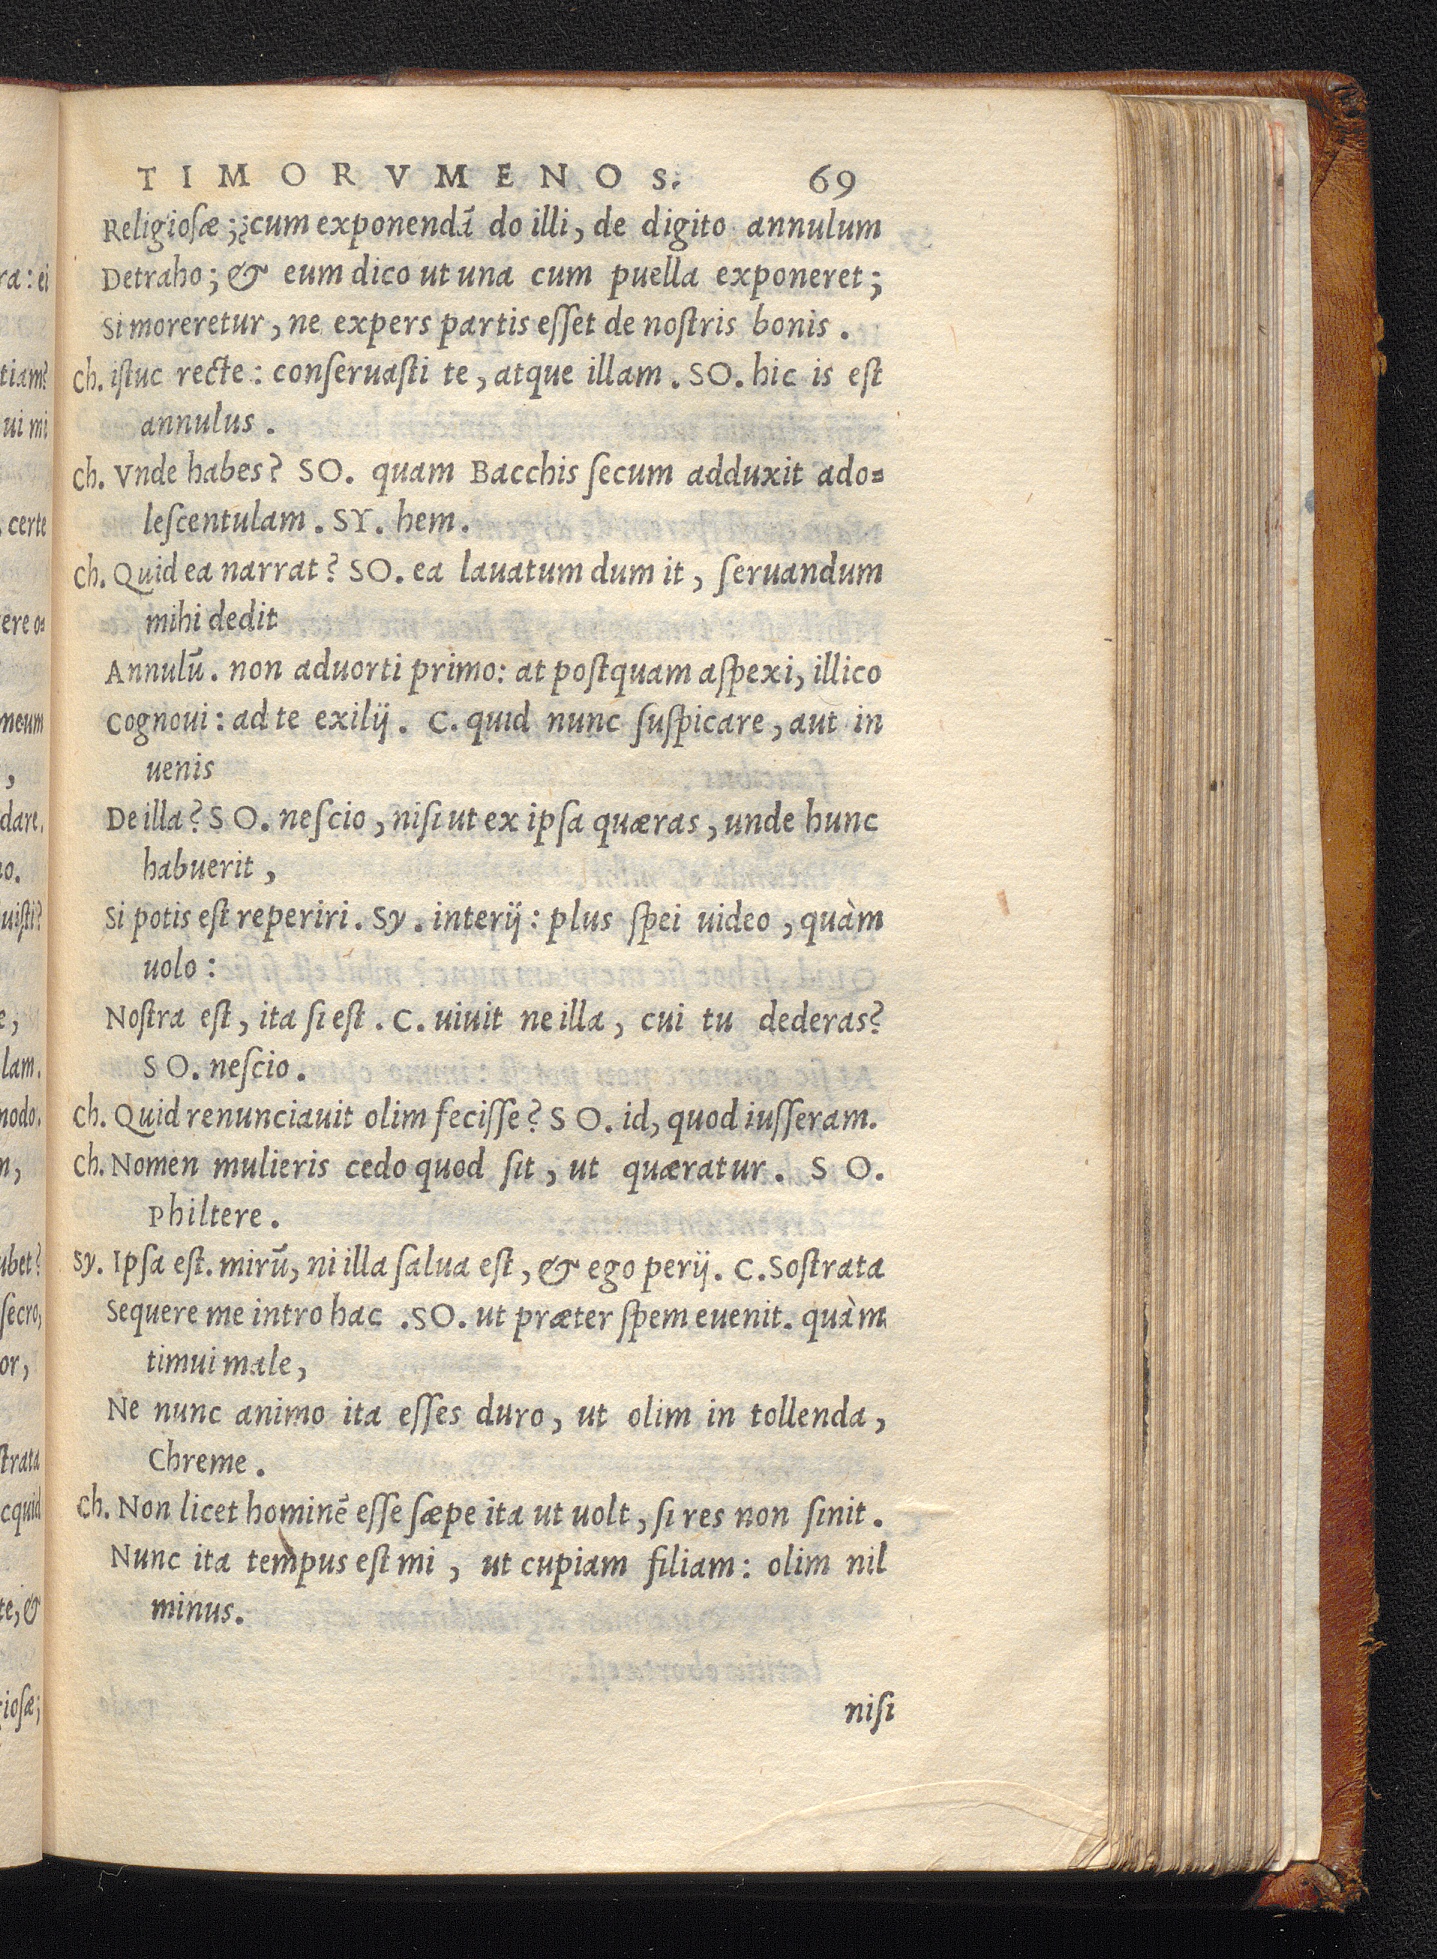 TIMORVMENOS. 69
Religioſæ; ¿cum exponendā do illi, de digito annulum
Detraho; & eum dico ut una cum puella exponeret;
Si moreretur, ne expers partis eſſet de noſtris bonis.
Ch. iſtuc recte: conſeruaſti te, atque illam. SO. hic is eſt
annulus.
Ch. Vnde habes? SO. quam Bacchis ſecum adduxit ado=
leſcentulam. SY. hem.
Ch. Quid ea narrat? SO. ea lauatum dum it, ſeruandum
mihi dedit
Annulū. non aduorti primo: at poſtquam aſpexi, illico
Cognoui: ad te exilij. C. quid nunc ſuſpicare, aut in
uenis
De illa? SO. neſcio, niſi ut ex ipſa quæras, unde hunc
habuerit,
Si potis eſt reperiri. Sy. interij: plus ſpei uideo, quàm
uolo:
Noſtra eſt, ita ſi eſt. C. uiuit ne illa, cui tu dederas?
SO. neſcio.
Ch. Quid renunciauit olim feciſſe? SO. id, quod iuſſeram.
Ch. Nomen mulieris cedo quod ſit, ut quæratur. SO.
Philtere.
Sy. Ipſa eſt. mirū, ni illa ſalua eſt, & ego perij. C. Soſtrata
Sequere me intro hac. SO. ut præter ſpem euenit. quàm
timui male,
Ne nunc animo ita eſſes duro, ut olim in tollenda,
Chreme.
Ch. Non licet hominē eſſe ſæpe ita ut uolt, ſi res non ſinit.
Nunc ita tempus eſt mi, ut cupiam filiam: olim nil
minus.
niſi